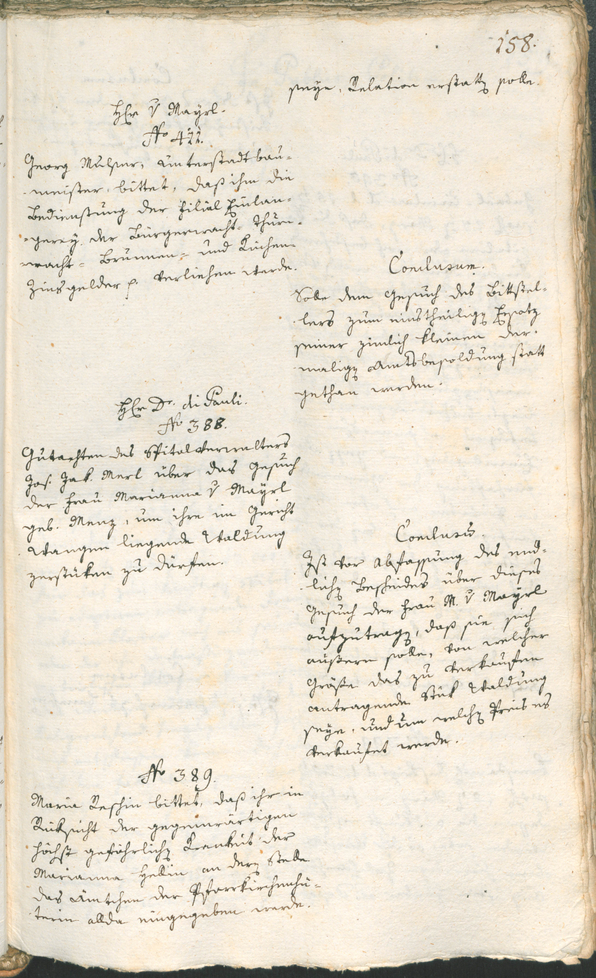 158.
seye, Relation erstatten solle.
Hr. v Mayrl.
No 411.
Georg Mulser, Unterstadtbau-
meister, bittet, daß ihm die
Bedienstung der Filial Einlan-
gerey, der Bürgerwacht, Thurn-
wacht- Brunnen- und Kuchen-
Zinsgelder p. verliehen werde.
Conclusum.
Solle dem Gesuch des Bittstel-
lers zum einstheiligen Ersatz
seiner zimlich kleinen der-
maligen Amtsbesoldung statt
gethan werden.
Hr. Dr. di Pauli.
No 388.
Gutachten des Spitalverwalters
Jos. Jak. Merl über das Gesuch
der Frau Marianna v Mayrl
geb. Menz, um ihre im Gericht
Wangen liegende Waldung
zerstüken zu dürfen.
Conclusum.
Ist vor Abfassung des end-
lichen Bescheides über dieses
Gesuch der Frau M. v Mayrl
aufzutragen, daß sie sich
äußern solle, von welcher
Größe das zu verkaufen
antragende Stük Waldung
seye, und um welchen Preis es
verkaufet werde.
No 389.
Maria Reschin bittet, daß ihr in
Rüksicht der gegenwärtigen
höchst gefährlichen Krankheit der
Marianna Hellin an deren Stelle
das Ämtchen der Pfarrkirchenhü-
terin allda eingegeben werde.